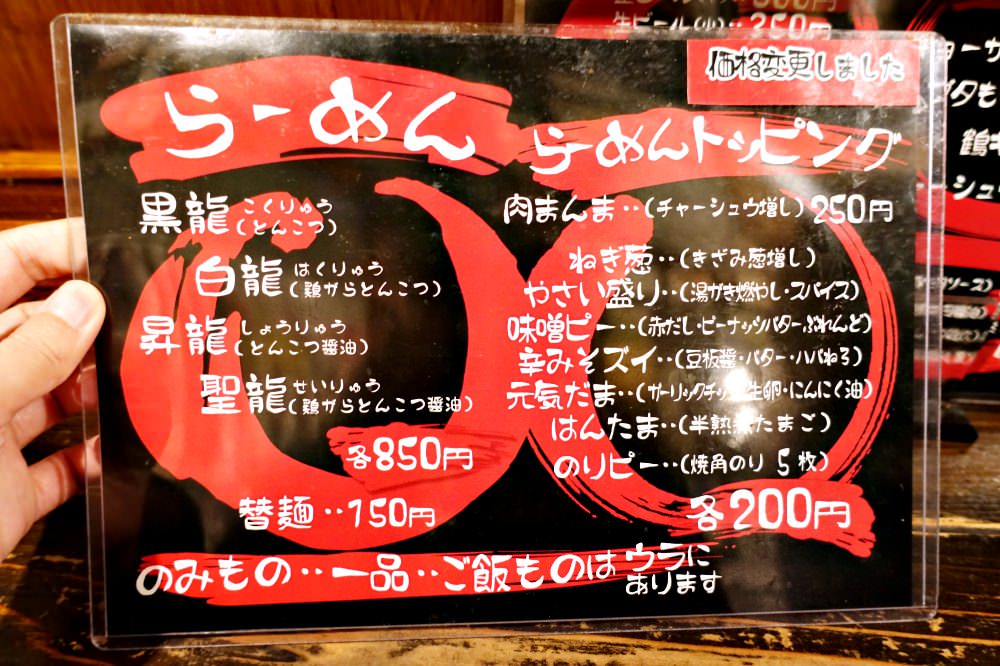 生ビール(小)‥350円
価格変更しました
らーめん
黒龍 こくりゅう
(とんこつ)
白龍 はくりゅう
(鶏がらとんこつ)
昇龍 しょうりゅう
(とんこつ醤油)
聖龍 せいりゅう
(鶏がらとんこつ醤油)
各850円
替麺‥150円
らーめんトッピング
肉まんま‥(チャーシュウ増し)250円
ねぎ葱‥(きざみ葱増し)
やさい盛り‥(湯がき燃やし・スパイス)
味噌ピー‥(赤だし・ピーナッツバターぶれんど)
辛みそズイ‥(豆板醤・バター・ルバねろ)
元気だま‥(ガーリックチッ 生卵・にんにく油)
はんたま‥(半熟煮たまご)
のりピー‥(焼角のり 5枚)
各200円
のみもの‥一品‥ご飯ものは ウラに
あります